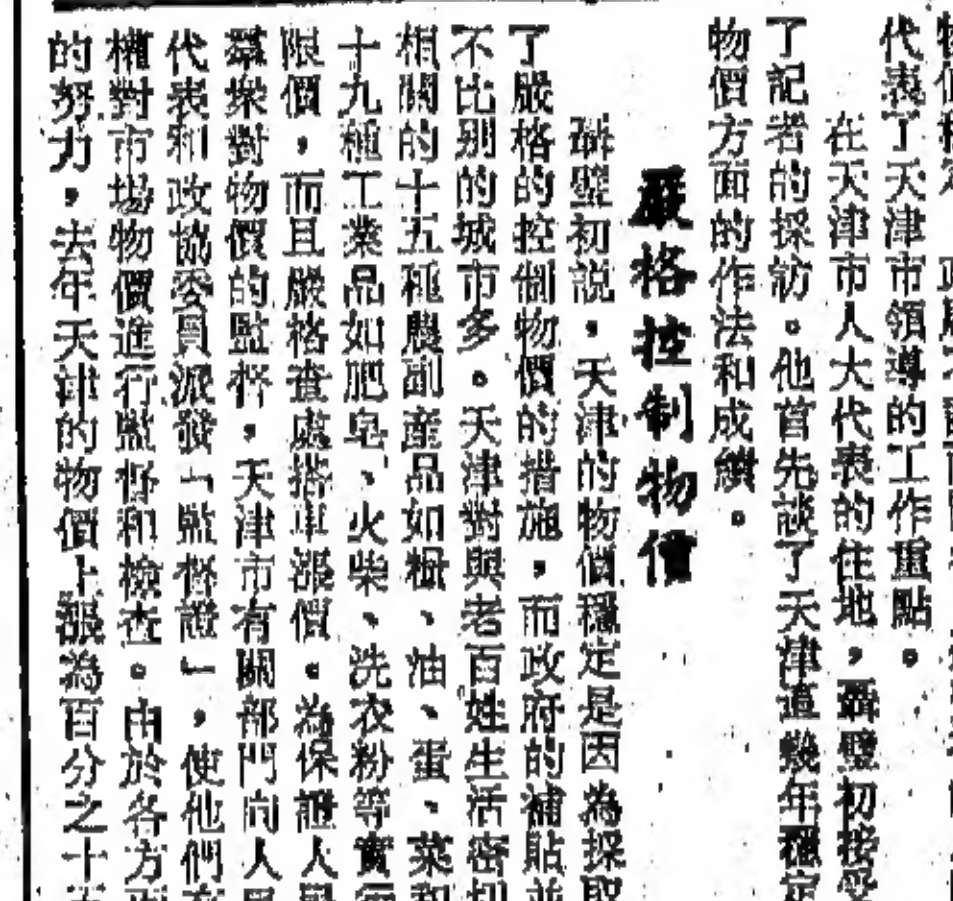 代表了天津市領導的工作重點。
在天津市人大代表的住地，聶璧初接受
了記者的採訪。他首先談了天津這幾年穩定
物價方面的作法和成績。
嚴格控制物價
聶璧初說，天津的物價穩定是因為採取
了嚴格的控制物價的措施，而政府的補貼並
不比別的城市多。天津對與老百姓生活密切
相關的十五種農副產品如糧、油、蛋、菜和
十九種工業品如肥皂、火柴、洗衣粉等實行
限價，而且嚴格查處搭車漲價。為保證人民
羣衆對物價的監督，天津市有關部門向人民
代表和政協委員派發「監督證」，使他們有
權對市場物價進行監督和檢查。由於各方面
的努力，去年天津的物價上漲為百分之十